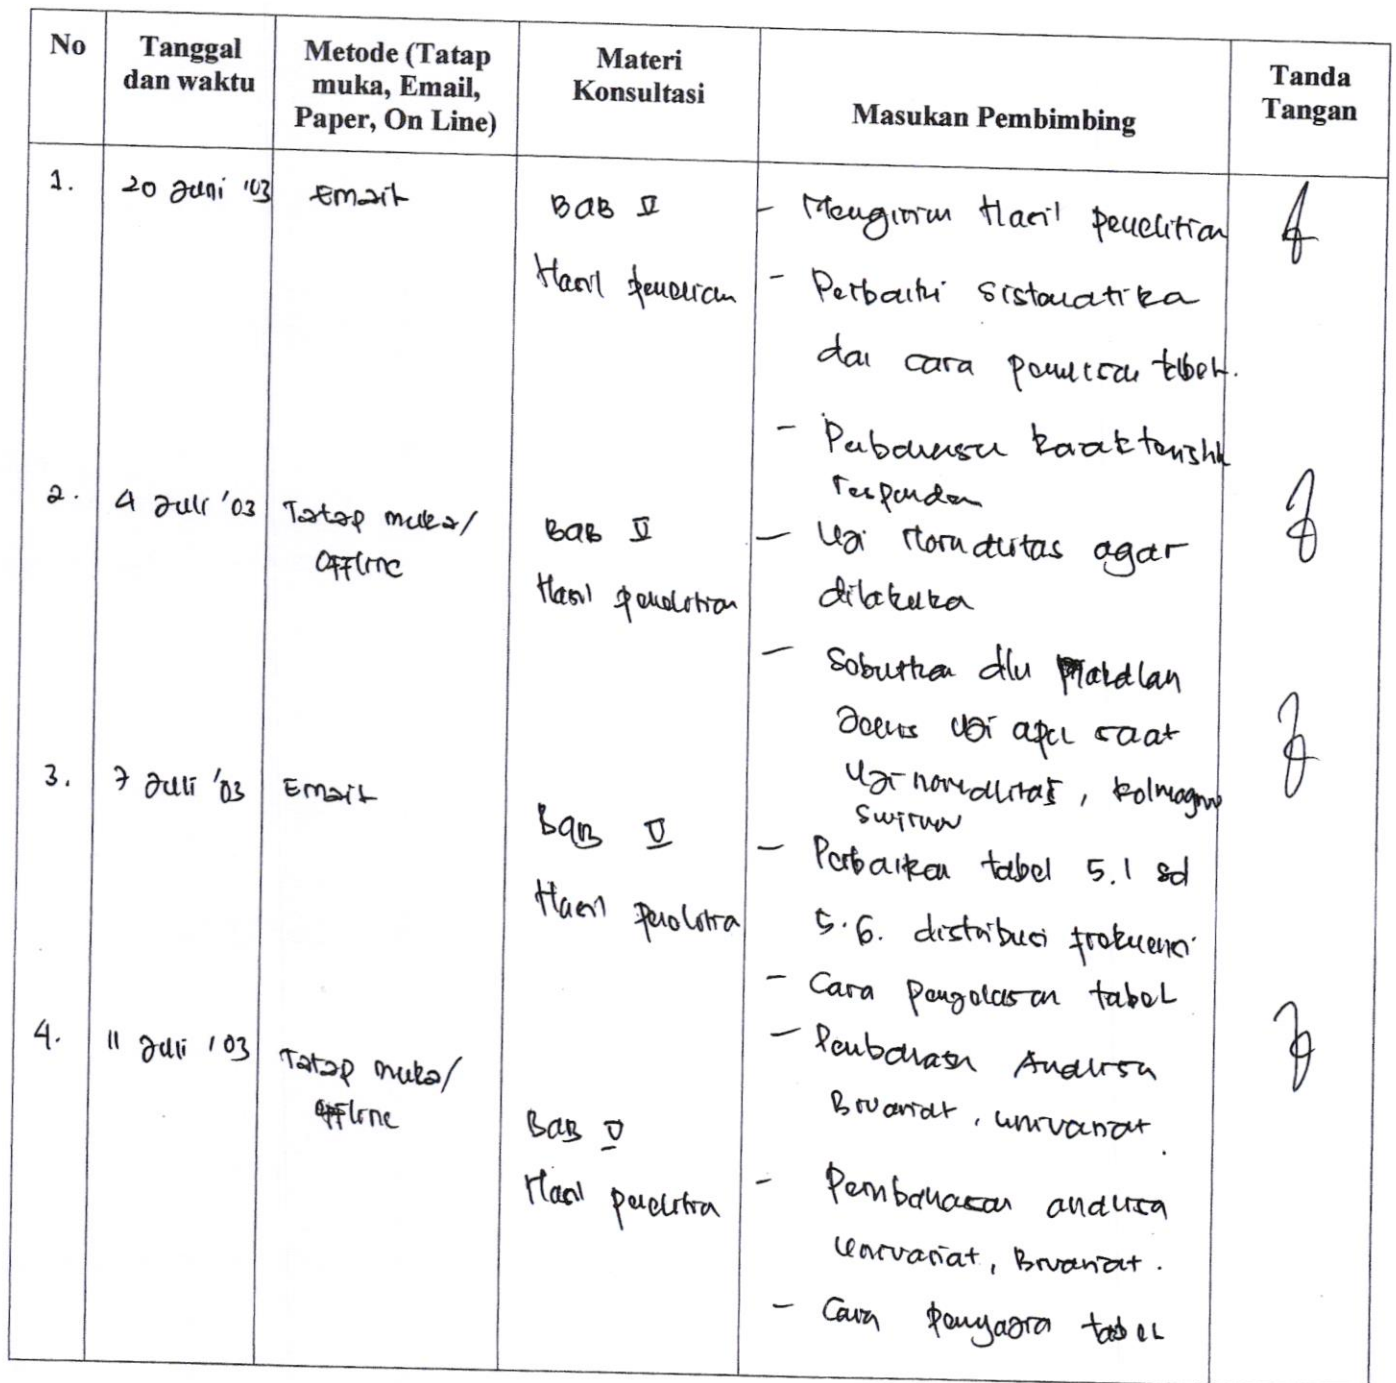 No
Tanggal
dan waktu
Metode (Tatap
muka, Email,
Paper, On Line)
Materi
Konsultasi
Masukan Pembimbing
Tanda
Tangan
1.
20 Juni '03
Email
BAB V
Hasil penelitian
- Mengirim Hasil penelitian
- Perbaiki sistematika
dan cara penulisan tabel.
- Pembahasan karakteristik
responden
2.
4 Juli '03
Tatap muka/
Offline
BAB V
Hasil penelitian
- Uji Normalitas agar
dilakukan
- Sebutkan dlu
Jenis uji apa saat
Uji normalitas, kolmogorov
smirnov
3.
7 Juli '03
Email
BAB V
Hasil penelitian
- Perbaikan tabel 5.1 sd
5.6. distribusi frekuensi
- Cara tabel
4.
11 Juli '03
Tatap muka/
Offline
BAB V
Hasil penelitian
- Pembahasan Analisa
Bivariat, univariat.
- Pembahasan analisa
Univariat, Bivariat.
- Cara penyajian tabel